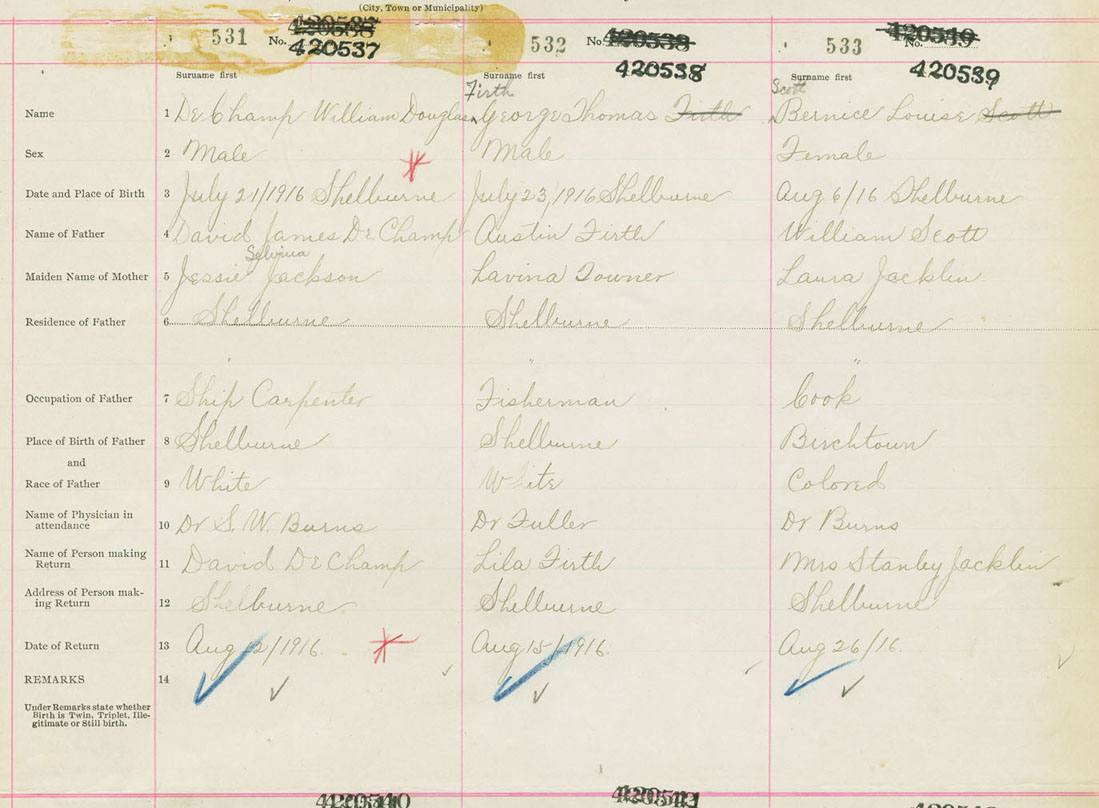 (City, Town or Municipality)
531 No. 420537 532 No. 420538 533 No. 420539
420537 420538 420539
Surname first Surname first Surname first
Firth Scott
Name 1 De Champ William Douglas George Thomas Firth Bernice Louise Scott
Sex 2 Male Male Female
Date and Place of Birth 3 July 21/1916 Shelburne July 23/1916 Shelburne Aug 6/16 Shelburne
Name of Father 4 David James De Champ Austin Firth William Scott
Maiden Name of Mother 5 Jessie Jackson Lavina Towner Laura Jacklin
Residence of Father 6 Shelburne Shelburne Shelburne
" " "
Occupation of Father 7 Ship Carpenter Fisherman Cook
Place of Birth of Father 8 Shelburne Shelburne Birchtown
and
Race of Father 9 White White Colored
Name of Physician in
attendance 10 Dr S. W. Burns Dr Fuller Dr Burns
Name of Person making
Return 11 David De Champ Lila Firth Mrs Stanley Jacklin
Address of Person mak-
ing Return 12 Shelburne Shelburne Shelburne
Date of Return 13 Aug 12/1916. Aug 15/1916. Aug 26/16.
REMARKS 14
Under Remarks state whether
Birth is Twin, Triplet, Ille-
gitimate or Still birth.